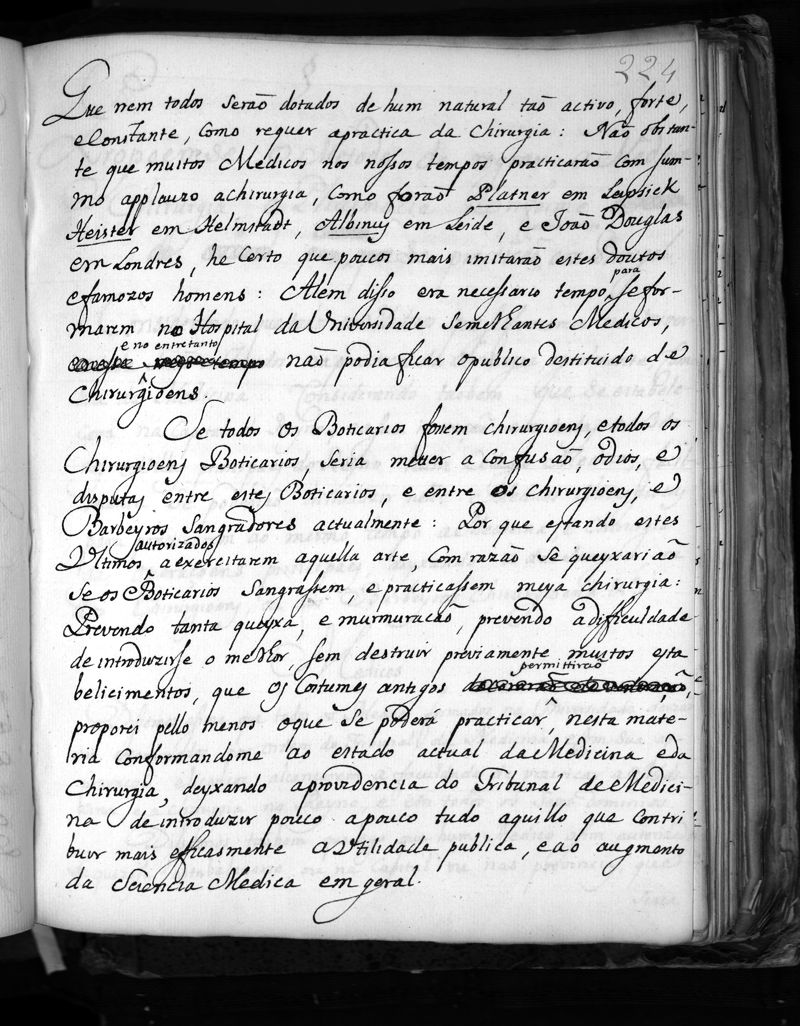 224
Que nem todos serão dotados de hum natural tão activo, forte,
e Constante, Como requer apractica da Chirurgia: Não obstan-
te que muitos Medicos nos nossos tempos practicarão Com sum-
mo applauzo achirurgia, Como forão Platner em Leipsick
Heister em Helmstadt, Albinus em Leide, e João Douglas
em Londres, he Certo que poucos mais imitarão estes doutos
para
efamozos homens: Alem disso era necessario tempo se for-
marem no Hospital da Universidade Semelhantes Medicos,
e no entretanto
tempo não podia ficar opublico destituido de
Chirurgioens.
Se todos os Boticarios fossem Chirurgioens, etodos os
Chirurgioens Boticarios, seria meter a Confusão, odios, e
disputas entre estes Boticarios, e entre os Chirurgioens, e
Barbeyros Sangradores actualmente: Por que estando estes
autorizados
Ultimos a exercitarem aquella arte, Com razão se queyxarião
se os Boticarios Sangrassem, e practicassem meya chirurgia:
Prevendo tanta queyxa, e murmuracão, prevendo adifficuldade
de introduzirse o melhor, sem destruir previamente muitos esta-
permittirão
belicimentos, que os Costumes antigos
proporei pello menos oque se poderá practicar, nesta mate-
ria Conformandome ao estado actual da Medicina eda
Chirurgia, deyxando aprovidencia do Tribunal de Medici-
na de introduzir pouco apouco tudo aquillo que Contri
buir mais efficasmente a Utilidade publica, eao augmento
da Sciencia Medica em geral.